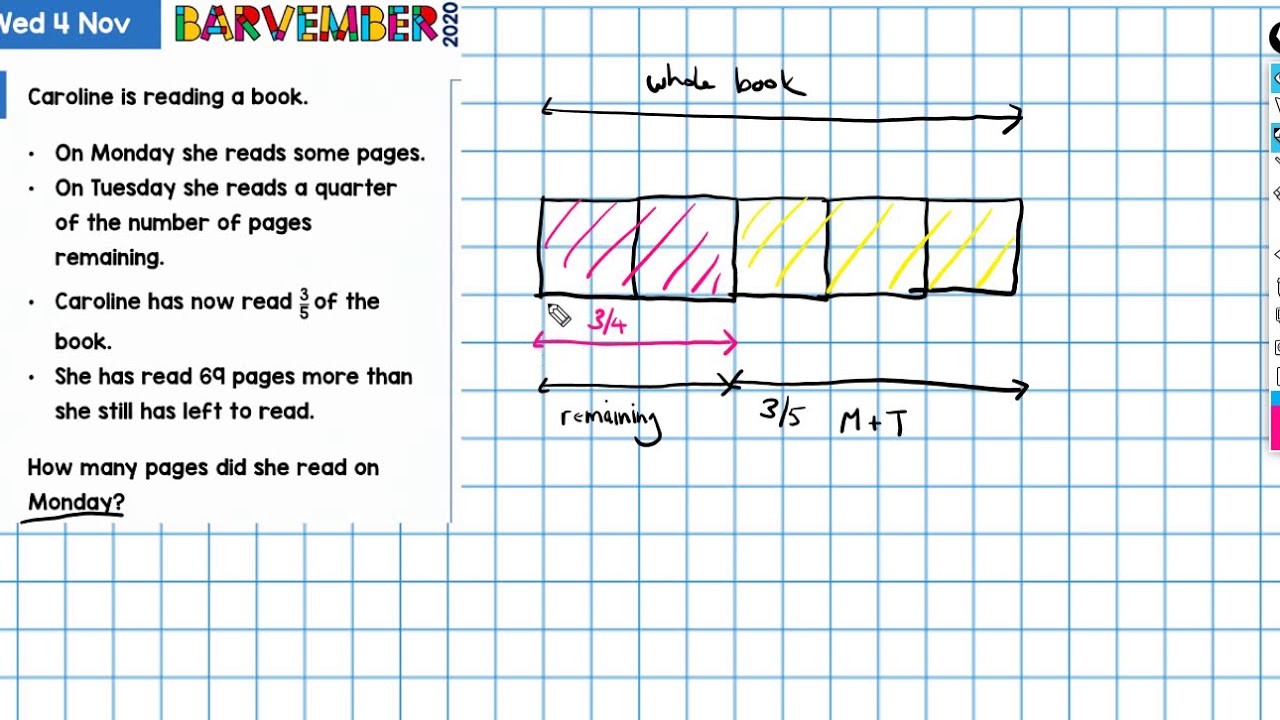 Wed 4 Nov
BARVEMBER 2020
Caroline is reading a book.
• On Monday she reads some pages.
• On Tuesday she reads a quarter
of the number of pages
remaining.
• Caroline has now read 3/5 of the
book.
• She has read 69 pages more than
she still has left to read.
How many pages did she read on
Monday?
whole book
3/4
remaining 3/5 M+T